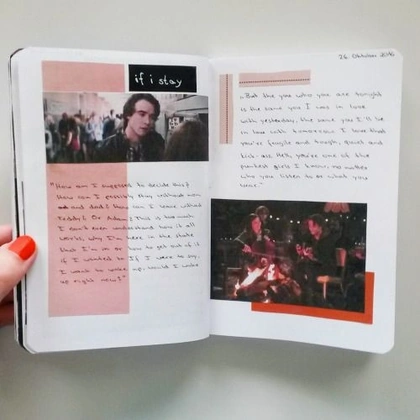 if i stay
"How am I supposed to decide this?
How can I possibly stay without mom
and dad? How can I leave without
Teddy? Or Adam? This is too much.
I don't even understand how it all
works, why I'm here in the state
that I'm in or how to get out of it
if I wanted to. If I were to say,
I want to wake up, would I wake
up right now?"
26. Oktober 2016
"But the you who you are tonight
is the same you I was in love
with yesterday, the same you I'll be
in love with tomorrow. I love that
you're fragile and tough, quiet and
kick-ass. Hell, you're one of the
punkest girls I know, no matter
who you listen to or what you
wear."